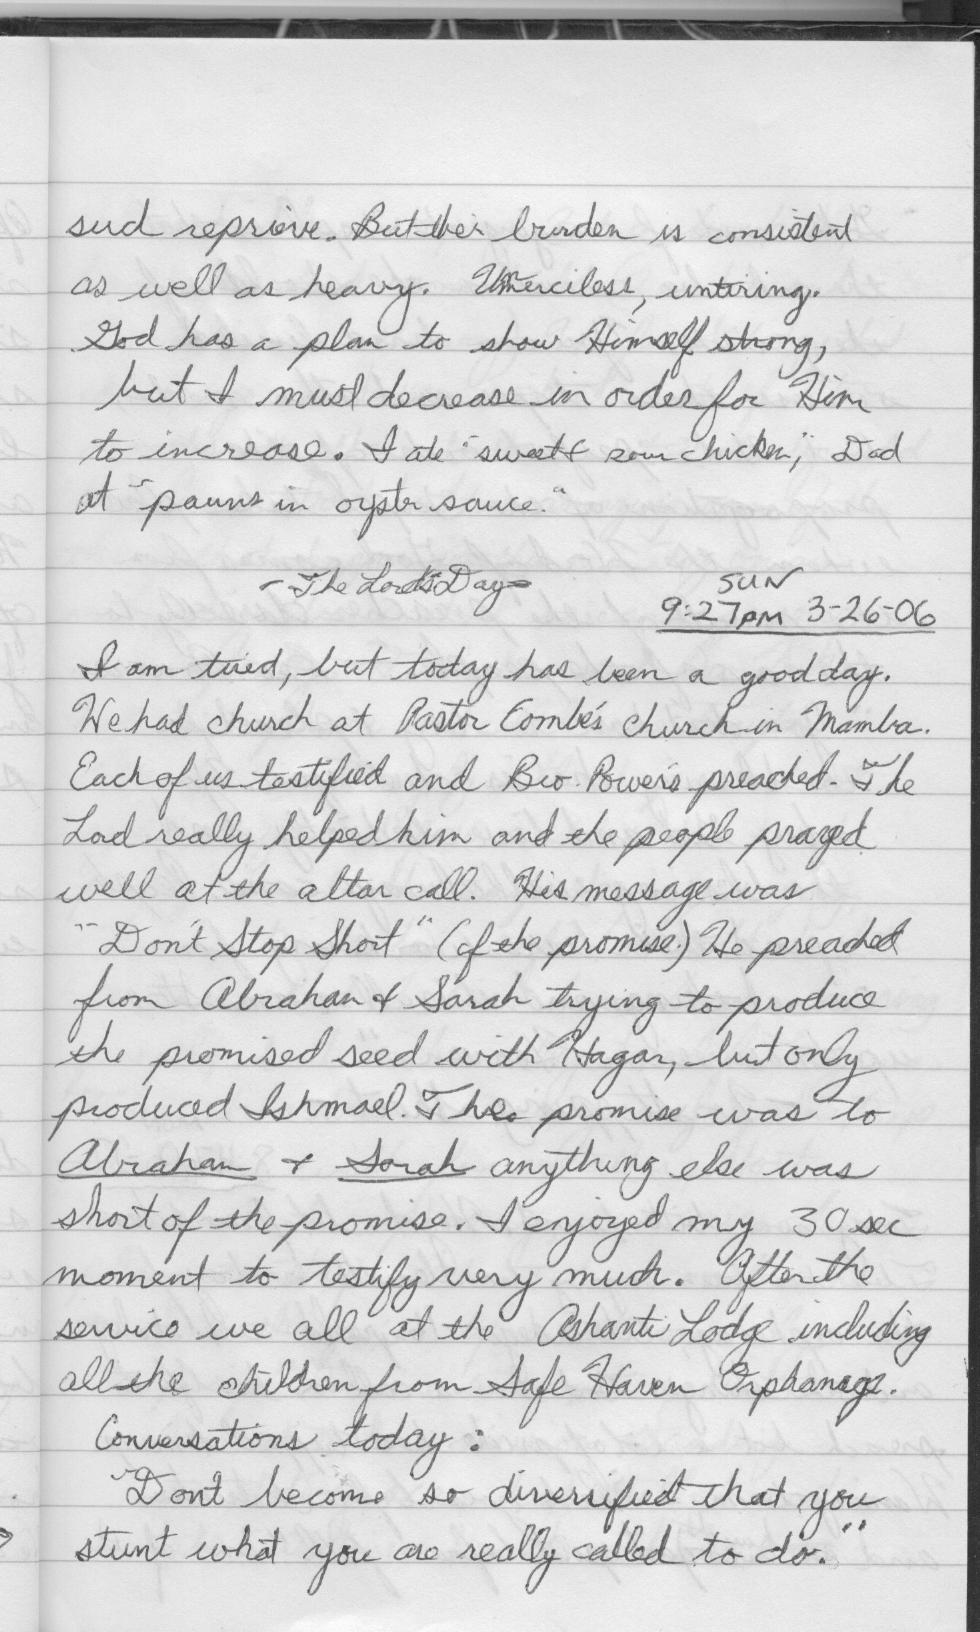 such reprieve. But their burden is consistent
as well as heavy. Unmerciless, untiring.
God has a plan to show Himself strong,
but I must decrease in order for Him
to increase. I ate "sweet & sour chicken," Dad
at "pawns in oyster sauce."
- The Lord's Day -
SUN
9:27pm 3-26-06
I am tired, but today has been a good day.
We had church at Pastor Combe's church in Mamba.
Each of us testified and Bro. Powers preached. The
Lord really helped him and the people prayed
well at the altar call. His message was
"Don't Stop Short" (of the promise.) He preached
from Abraham & Sarah trying to produce
the promised seed with Hagar, but only
produced Ishmael. The promise was to
Abraham & Sarah anything else was
short of the promise. I enjoyed my 30 sec
moment to testify very much. After the
service we all at the Ashanti Lodge including
all the children from Safe Haven Orphanage.
Conversations today:
"Don't become so diversified that you
stunt what you are really called to do."